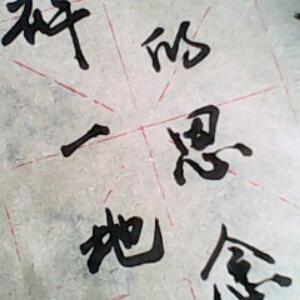 的思念
一地